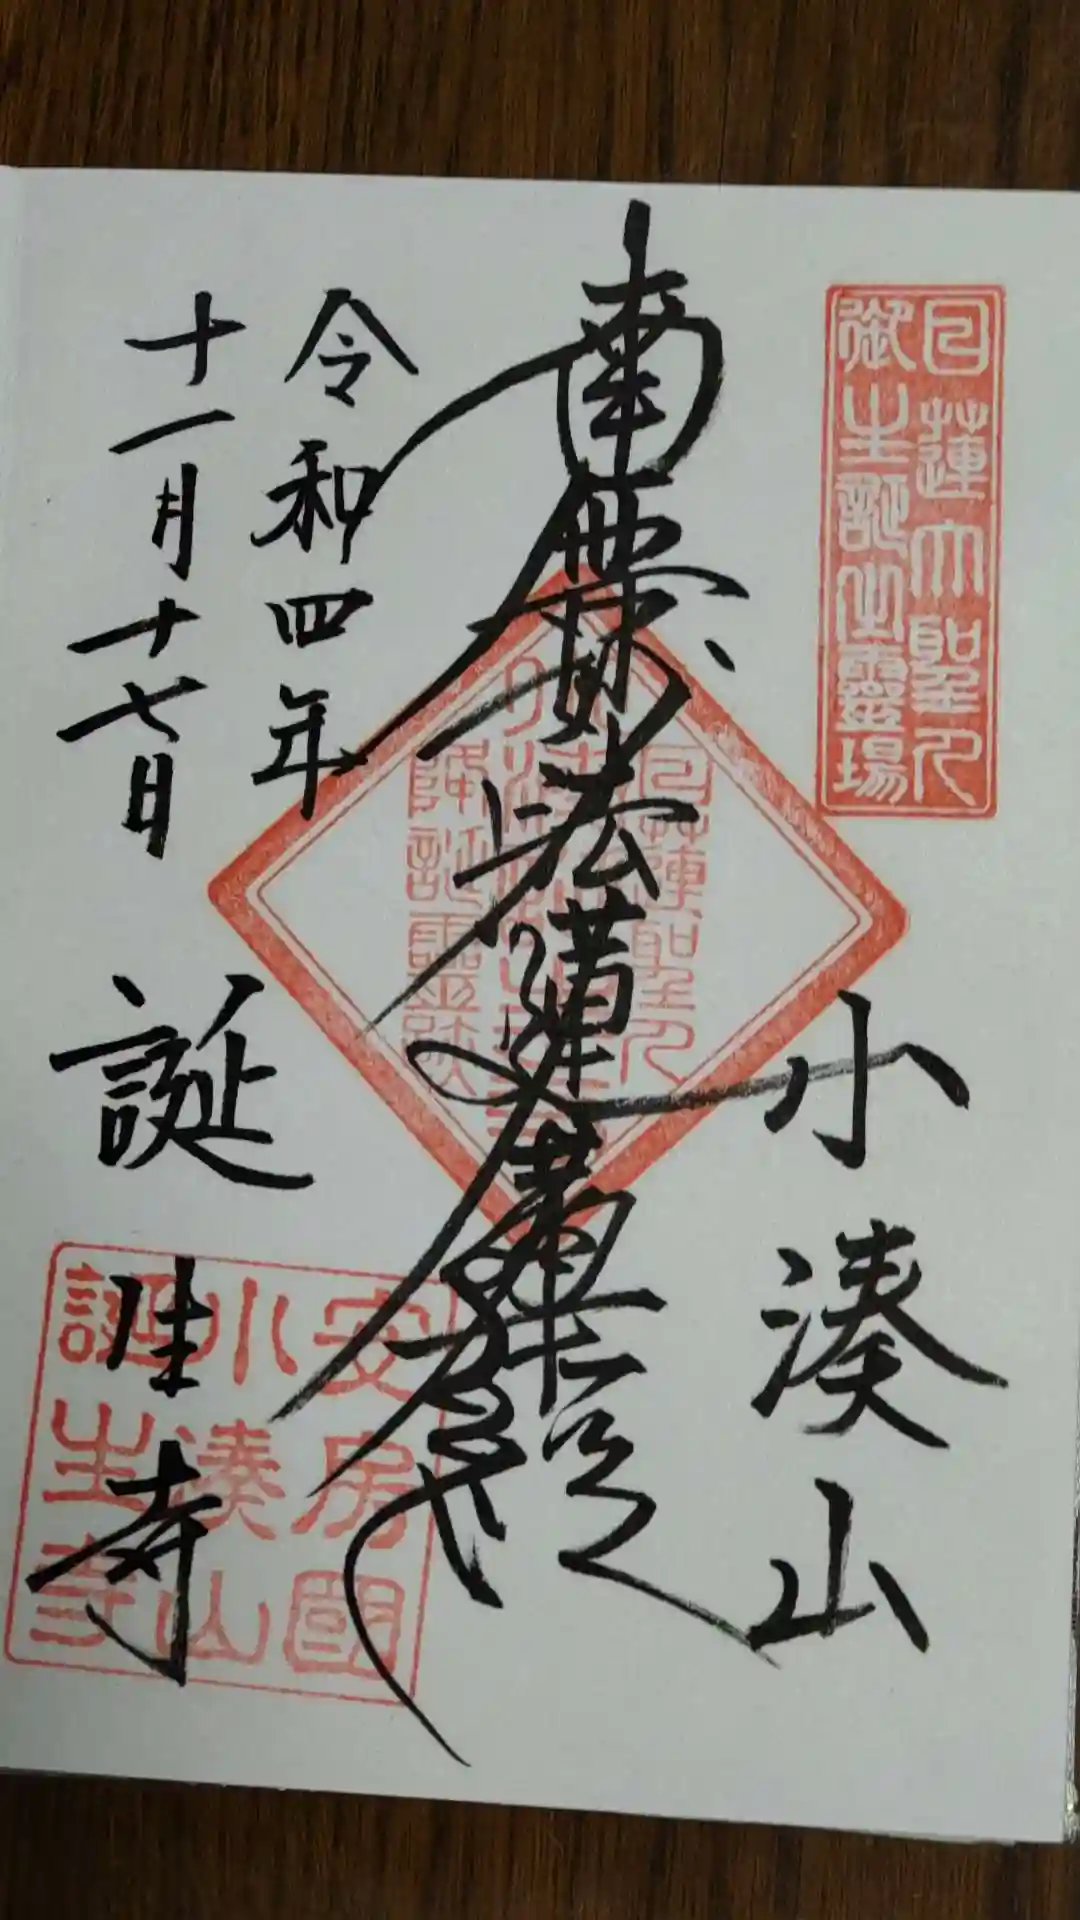 日蓮大聖人
御生誕之靈場
小湊山
南無妙法蓮華経
日蓮聖人
降誕靈跡
令和四年
十一月十七日
誕生寺
安房國
小湊山
誕生寺